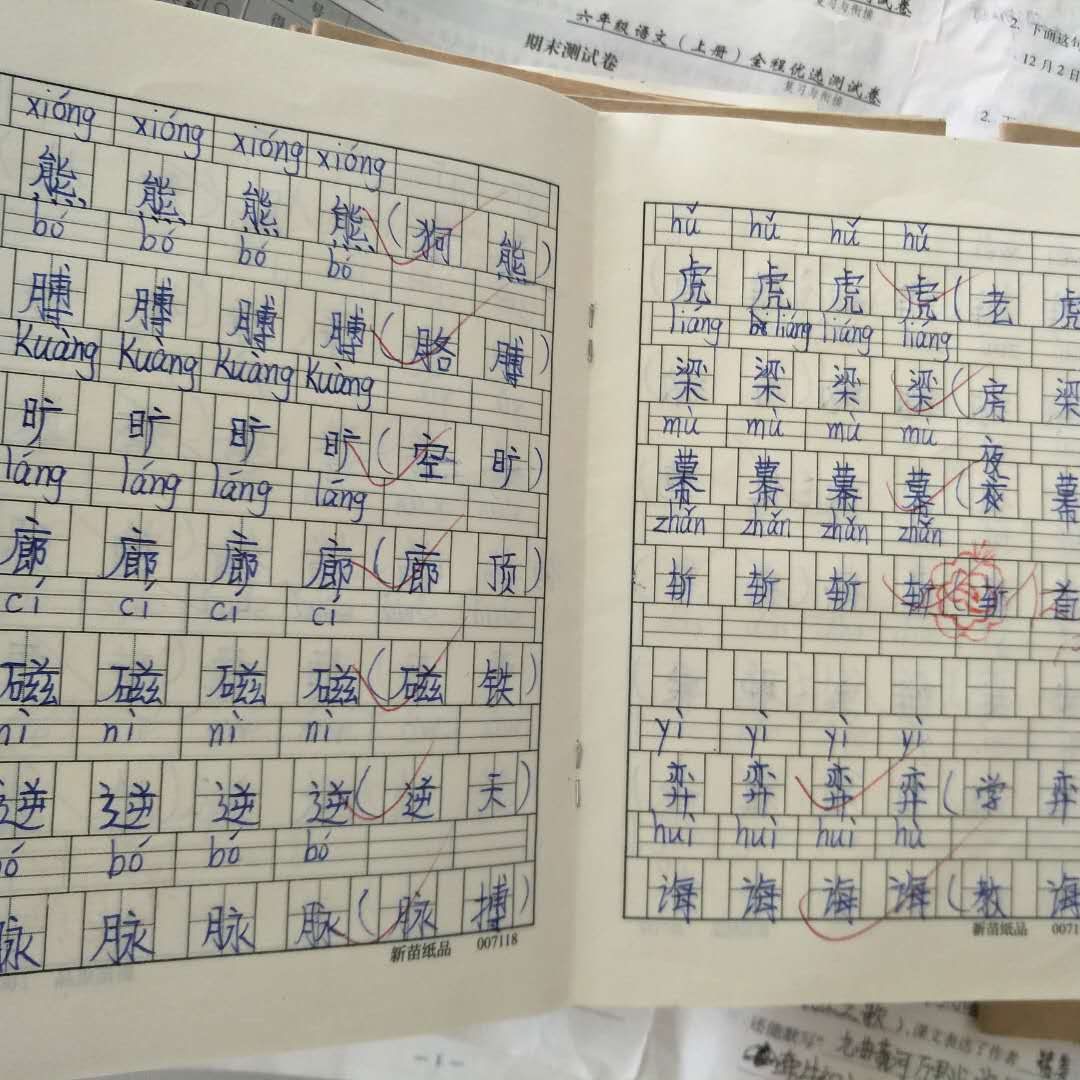 六年级语文（上册）全程优选测试卷
期末测试卷
复习与衔接
复习与衔接
2. 下面这
12月2日
xióng xióng xióng xióng
熊 熊 熊 熊 ( 狗 熊 )
bó bó bó bó
膊 膊 膊 膊 ( 胳 膊 )
Kuàng Kuàng Kuàng Kuàng
旷 旷 旷 旷 ( 空 旷 )
láng láng láng láng
廊 廊 廊 廊 ( 廊 顶 )
cí cí cí cí
磁 磁 磁 磁 ( 磁 铁 )
nì nì nì nì
逆 逆 逆 逆 ( 逆 天 )
bó bó bó bó
脉 脉 脉 脉 ( 脉 搏 )
新苗纸品 007118
hǔ hǔ hǔ hǔ
虎 虎 虎 虎 ( 老 虎
liáng liáng liáng liáng
梁 梁 梁 梁 ( 房 梁
mù mù mù mù
幕 幕 幕 幕 ( 夜 幕
zhǎn zhǎn zhǎn zhǎn
斩 斩 斩 斩 ( 斩 首
yì yì yì yì
弈 弈 弈 弈 ( 学 弈
huì huì huì hù
诲 诲 诲 诲 ( 教 诲
新苗纸品 0071
之歌），课文表达了作者
- 1 -